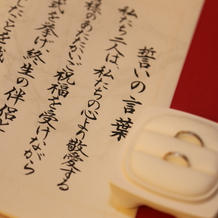 誓いの言葉
私たち二人は、私たちの心より敬愛する
様のあたたかいご祝福を受けながら
式を挙げ、終生の伴侶と
したことを誓